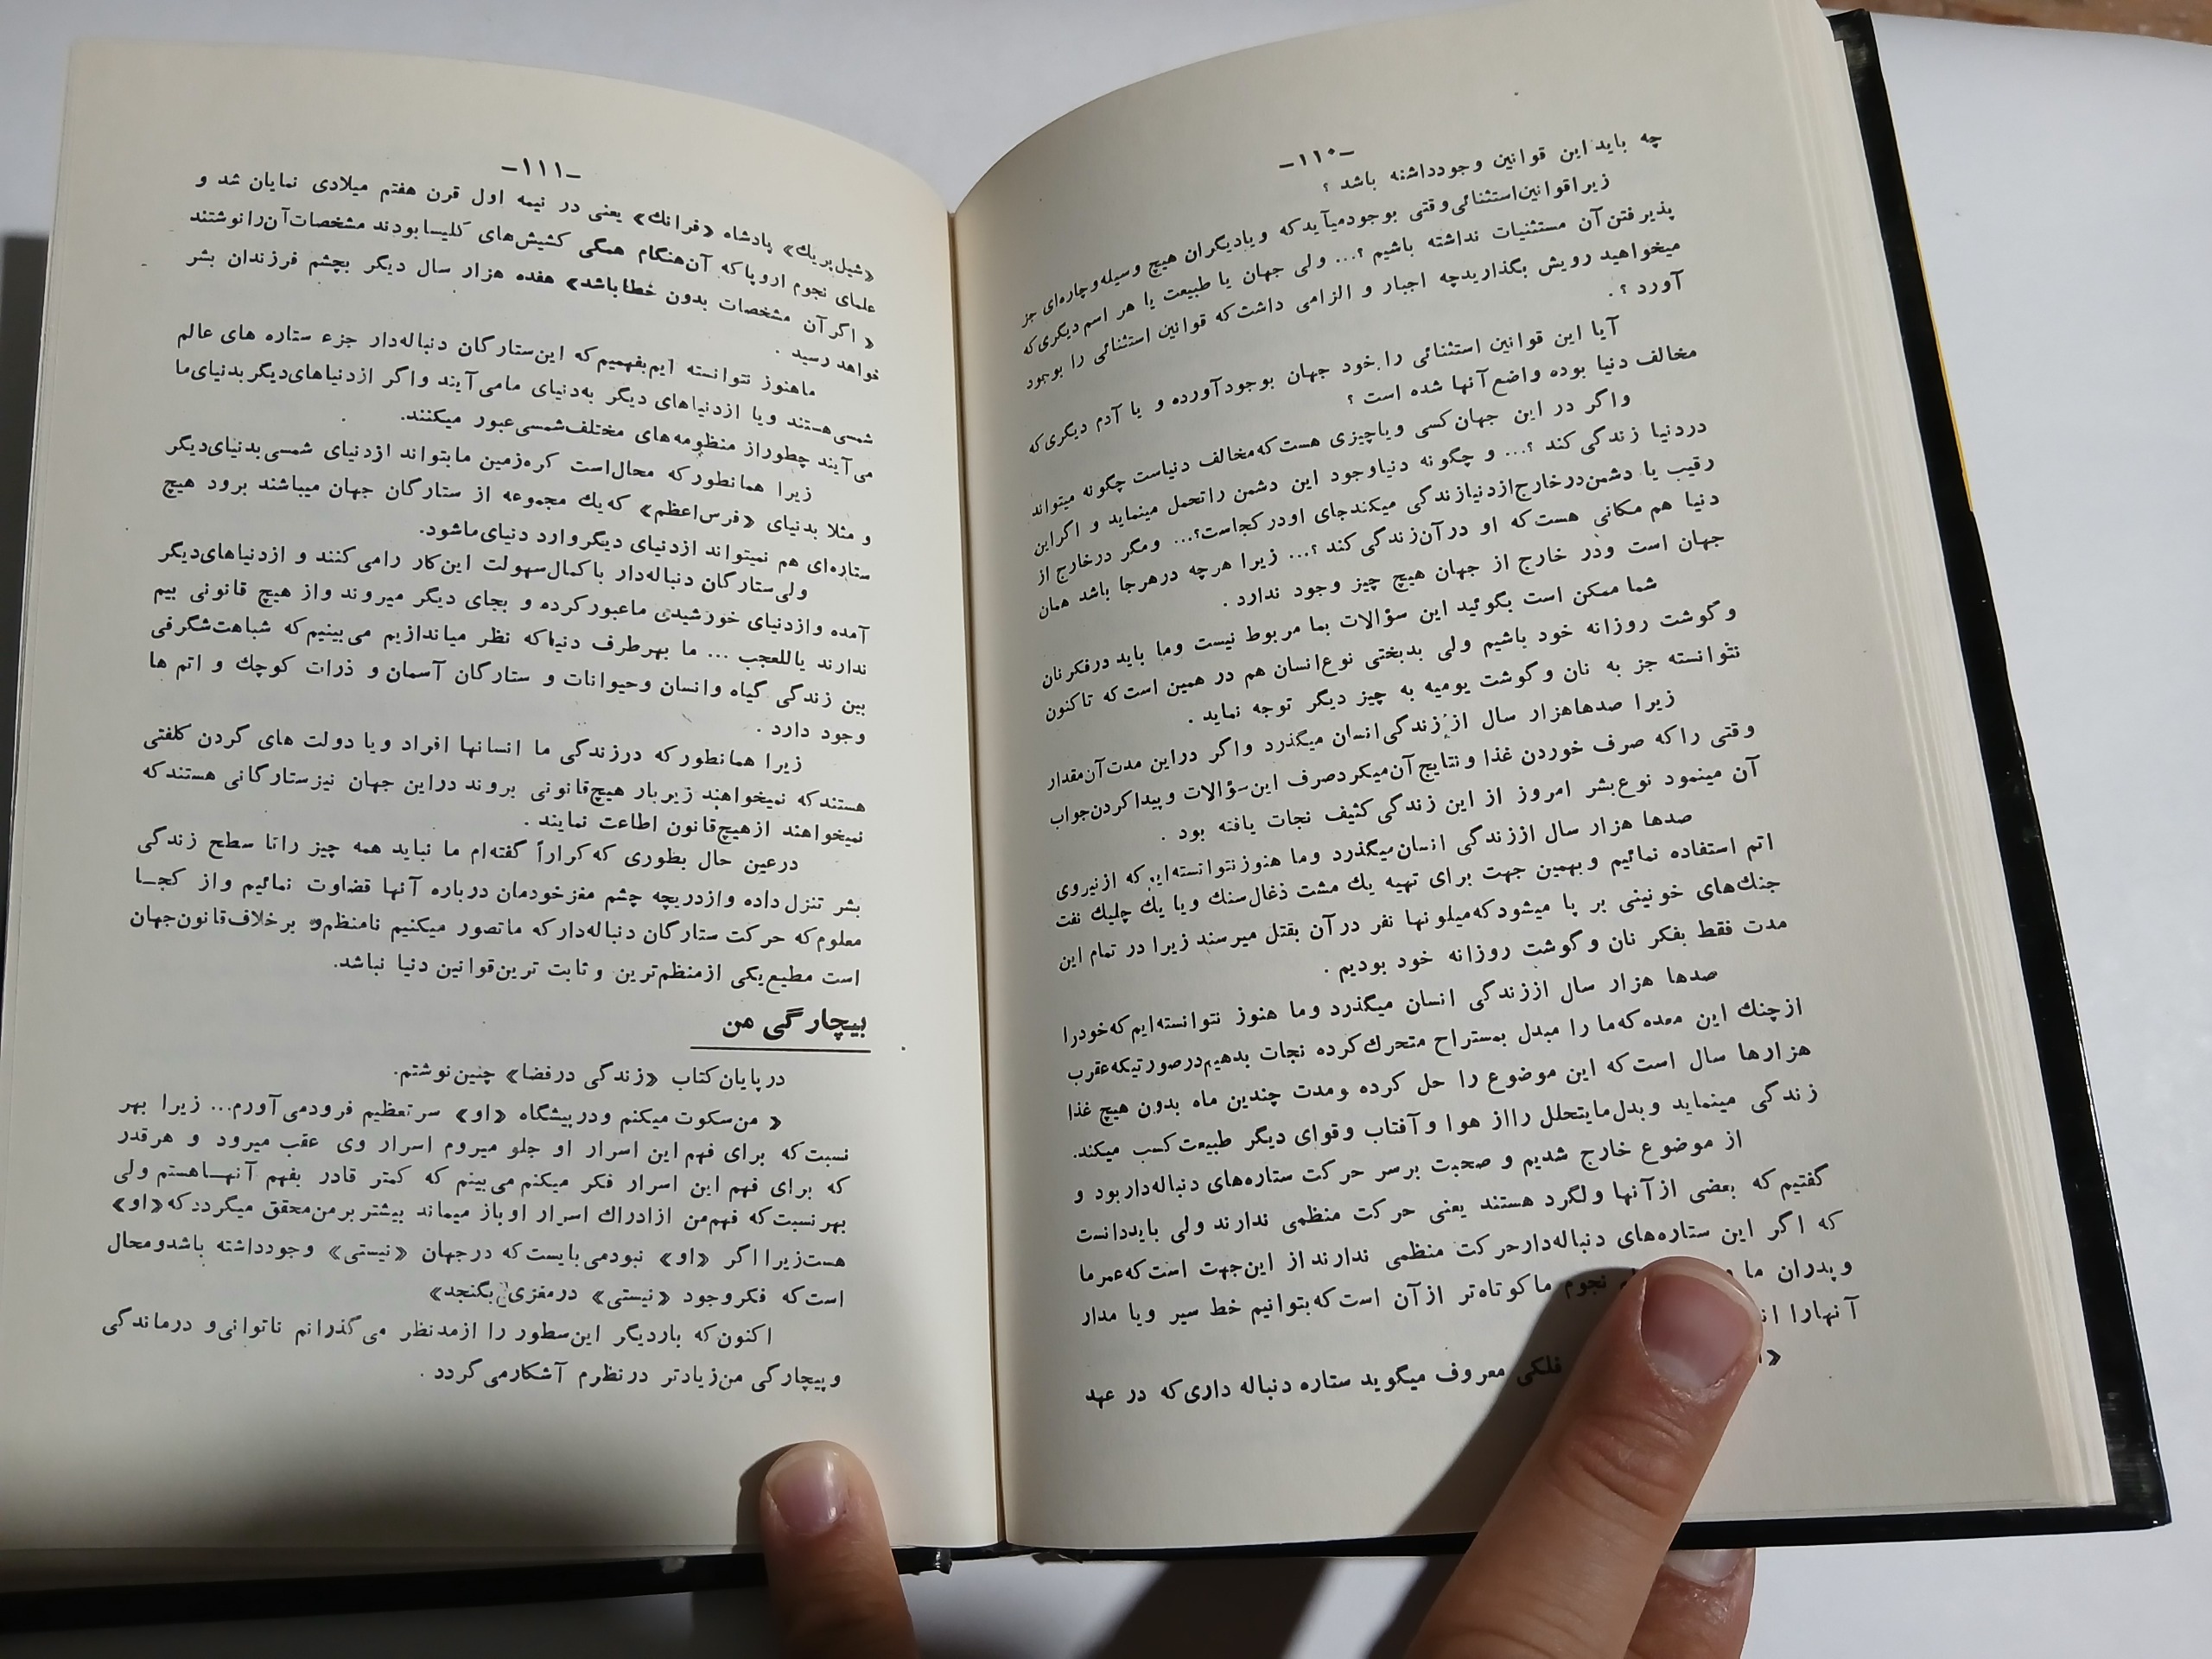 ـ۱۱۰ـ
چه باید این قوانین وجودداشته باشد ؟
زیراقوانین‌استثنائی‌وقتی بوجودمیآیدکه ویادیگران هیچ وسیله‌وچاره‌ای جز
پذیرفتن‌آن مستثنیات نداشته باشیم ؟... ولی جهان یا طبیعت یا هر اسم دیگری‌که
میخواهید رویش بگذاریدچه اجبار و الزامی داشت‌که قوانین استثنائی را بوجود
آورد ؟.
آیا این قوانین استثنائی را خود جهان بوجودآورده و یا آدم دیگری‌که
مخالف دنیا بوده واضع‌آنها شده است ؟
واگر در این جهان‌کسی ویاچیزی هست‌که‌مخالف دنیاست چگونه میتواند
دردنیا زندگی‌کند ؟... و چگونه دنیاوجود این دشمن راتحمل مینماید و اگراین
رقیب یا دشمن‌درخارج‌ازدنیازندگی میکندجای اودرکجاست؟... ومگر درخارج از
دنیا هم مکانی هست‌که او درآن‌زندگی‌کند ؟... زیرا هرچه درهرجا باشد همان
جهان است ودر خارج از جهان هیچ چیز وجود ندارد .
شما ممکن است بگوئید این سؤالات بما مربوط نیست وما باید درفکرنان
وگوشت روزانه خود باشیم ولی بدبختی نوع‌انسان هم در همین است‌که تاکنون
نتوانسته جز به نان وگوشت یومیه به چیز دیگر توجه نماید .
زیرا صدهاهزار سال از زندگی‌انسان میگذرد واگر دراین مدت‌آن‌مقدار
وقتی راکه صرف خوردن غذا ونتایج آن‌میکردصرف این‌سؤالات وپیداکردن‌جواب
آن مینمود نوع‌بشر امروز از این زندگی‌کثیف نجات یافته بود .
صدها هزار سال اززندگی انسان‌میگذرد وما هنوزنتوانسته‌ایم‌که ازنیروی
اتم استفاده نمائیم وبهمین جهت برای تهیه یك مشت ذغال‌سنك ویا یك چلیك نفت
جنك‌های خونینی بر پا میشودکه‌میلونها نفر درآن بقتل میرسند زیرا در تمام این
مدت فقط بفکر نان وگوشت روزانه خود بودیم .
صدها هزار سال اززندگی انسان میگذرد وما هنوز نتوانسته‌ایم‌که‌خودرا
ازچنك این معده‌که‌ما را مبدل بمستراح متحرك‌کرده نجات بدهیم‌درصورتیکه‌عقرب
هزارها سال است‌که این موضوع را حل کرده ومدت چندین ماه بدون هیچ غذا
زندگی مینماید وبدل‌مایتحلل رااز هوا وآفتاب وقوای دیگر طبیعت‌کسب میکند.
از موضوع خارج شدیم و صحبت برسر حرکت ستاره‌های دنباله‌داربود و
گفتیم که بعضی ازآنها ولگرد هستند یعنی حرکت منظمی ندارند ولی بایددانست
که اگر این ستاره‌های دنباله‌دارحرکت منظمی ندارند از این‌جهت است‌که‌عمرما
وپدران ما نجوم ماکوتاه‌تر ازآن است‌که‌بتوانیم خط سیر ویا مدار
آنهارا
فلکی معروف میگوید ستاره دنباله داری‌که در عهد
ـ۱۱۱ـ
«شیل‌پریك» پادشاه «فرانك» یعنی در نیمه اول قرن هفتم میلادی نمایان شد و
علمای نجوم اروپاکه آن‌هنگام همگی کشیش‌های کلیسابودند مشخصات‌آن‌رانوشتند
« اگرآن مشخصات بدون خطاباشد» هفده هزار سال دیگر بچشم فرزندان بشر
خواهد رسید .
ماهنوز نتوانسته ایم‌بفهمیم‌که این‌ستارگان دنباله‌دار جزء ستاره های عالم
شمسی‌هستند ویا ازدنیاهای دیگر به‌دنیای مامی‌آیند واگر ازدنیاهای‌دیگربدنیای‌ما
می‌آیند چطوراز منظومه‌های مختلف‌شمسی‌عبور میکنند.
زیرا همانطورکه محال‌است کره‌زمین مابتواند ازدنیای شمسی‌بدنیای‌دیگر
و مثلا بدنیای «فرس‌اعظم» که‌یك مجموعه از ستارگان جهان میباشند برود هیچ
ستاره‌ای هم نمیتواند ازدنیای دیگروارد دنیای‌ماشود.
ولی‌ستارگان دنباله‌دار باکمال‌سهولت این‌کار رامی‌کنند و ازدنیاهای‌دیگر
آمده وازدنیای خورشیدی ماعبورکرده و بجای دیگر میروند واز هیچ قانونی بیم
ندارند یاللعجب ... ما بهرطرف دنیاکه نظر میاندازیم می‌بینیم‌که شباهت‌شگرفی
بین زندگی گیاه وانسان وحیوانات و ستارگان آسمان و ذرات کوچك و اتم ها
وجود دارد .
زیرا همانطورکه درزندگی ما انسانها افراد ویا دولت های گردن کلفتی
هستندکه نمیخواهند زیربار هیچ‌قانونی بروند دراین جهان نیزستارگانی هستندکه
نمیخواهند ازهیچ‌قانون اطاعت نمایند .
درعین حال بطوری که‌کراراً گفته‌ام ما نباید همه چیز راتا سطح زندگی
بشر تنزل‌داده وازدریچه چشم مغزخودمان درباره آنها قضاوت نمائیم واز کجا
معلوم‌که حرکت ستارگان دنباله‌دارکه ماتصور میکنیم نامنظم‌و برخلاف‌قانون‌جهان
است مطیع‌یکی ازمنظم‌ترین وثابت ترین‌قوانین دنیا نباشد.
بیچارگی من
درپایان‌کتاب «زندگی درفضا» چنین‌نوشتم.
« من‌سکوت میکنم ودرپیشگاه «او» سرتعظیم فرودمی‌آورم... زیرا بهر
نسبت‌که برای فهم این اسرار او جلو میروم اسرار وی عقب میرود و هرقدر
که برای فهم این اسرار فکر میکنم می‌بینم که کمتر قادر بفهم آنهاهستم ولی
بهرنسبت‌که فهم‌من ازادراك اسرار اوباز میماند بیشتربرمن‌محقق میگرددکه«او»
هست‌زیرااگر «او» نبودمی‌بایست‌که درجهان «نیستی» وجودداشته باشدومحال
است‌که فکروجود «نیستی» درمغزی بگنجد»
اکنون‌که باردیگر این‌سطور را ازمدنظر می‌گذرانم ناتوانی‌و درماندگی
وبیچارگی من‌زیادتر درنظرم آشکارمی‌گردد .